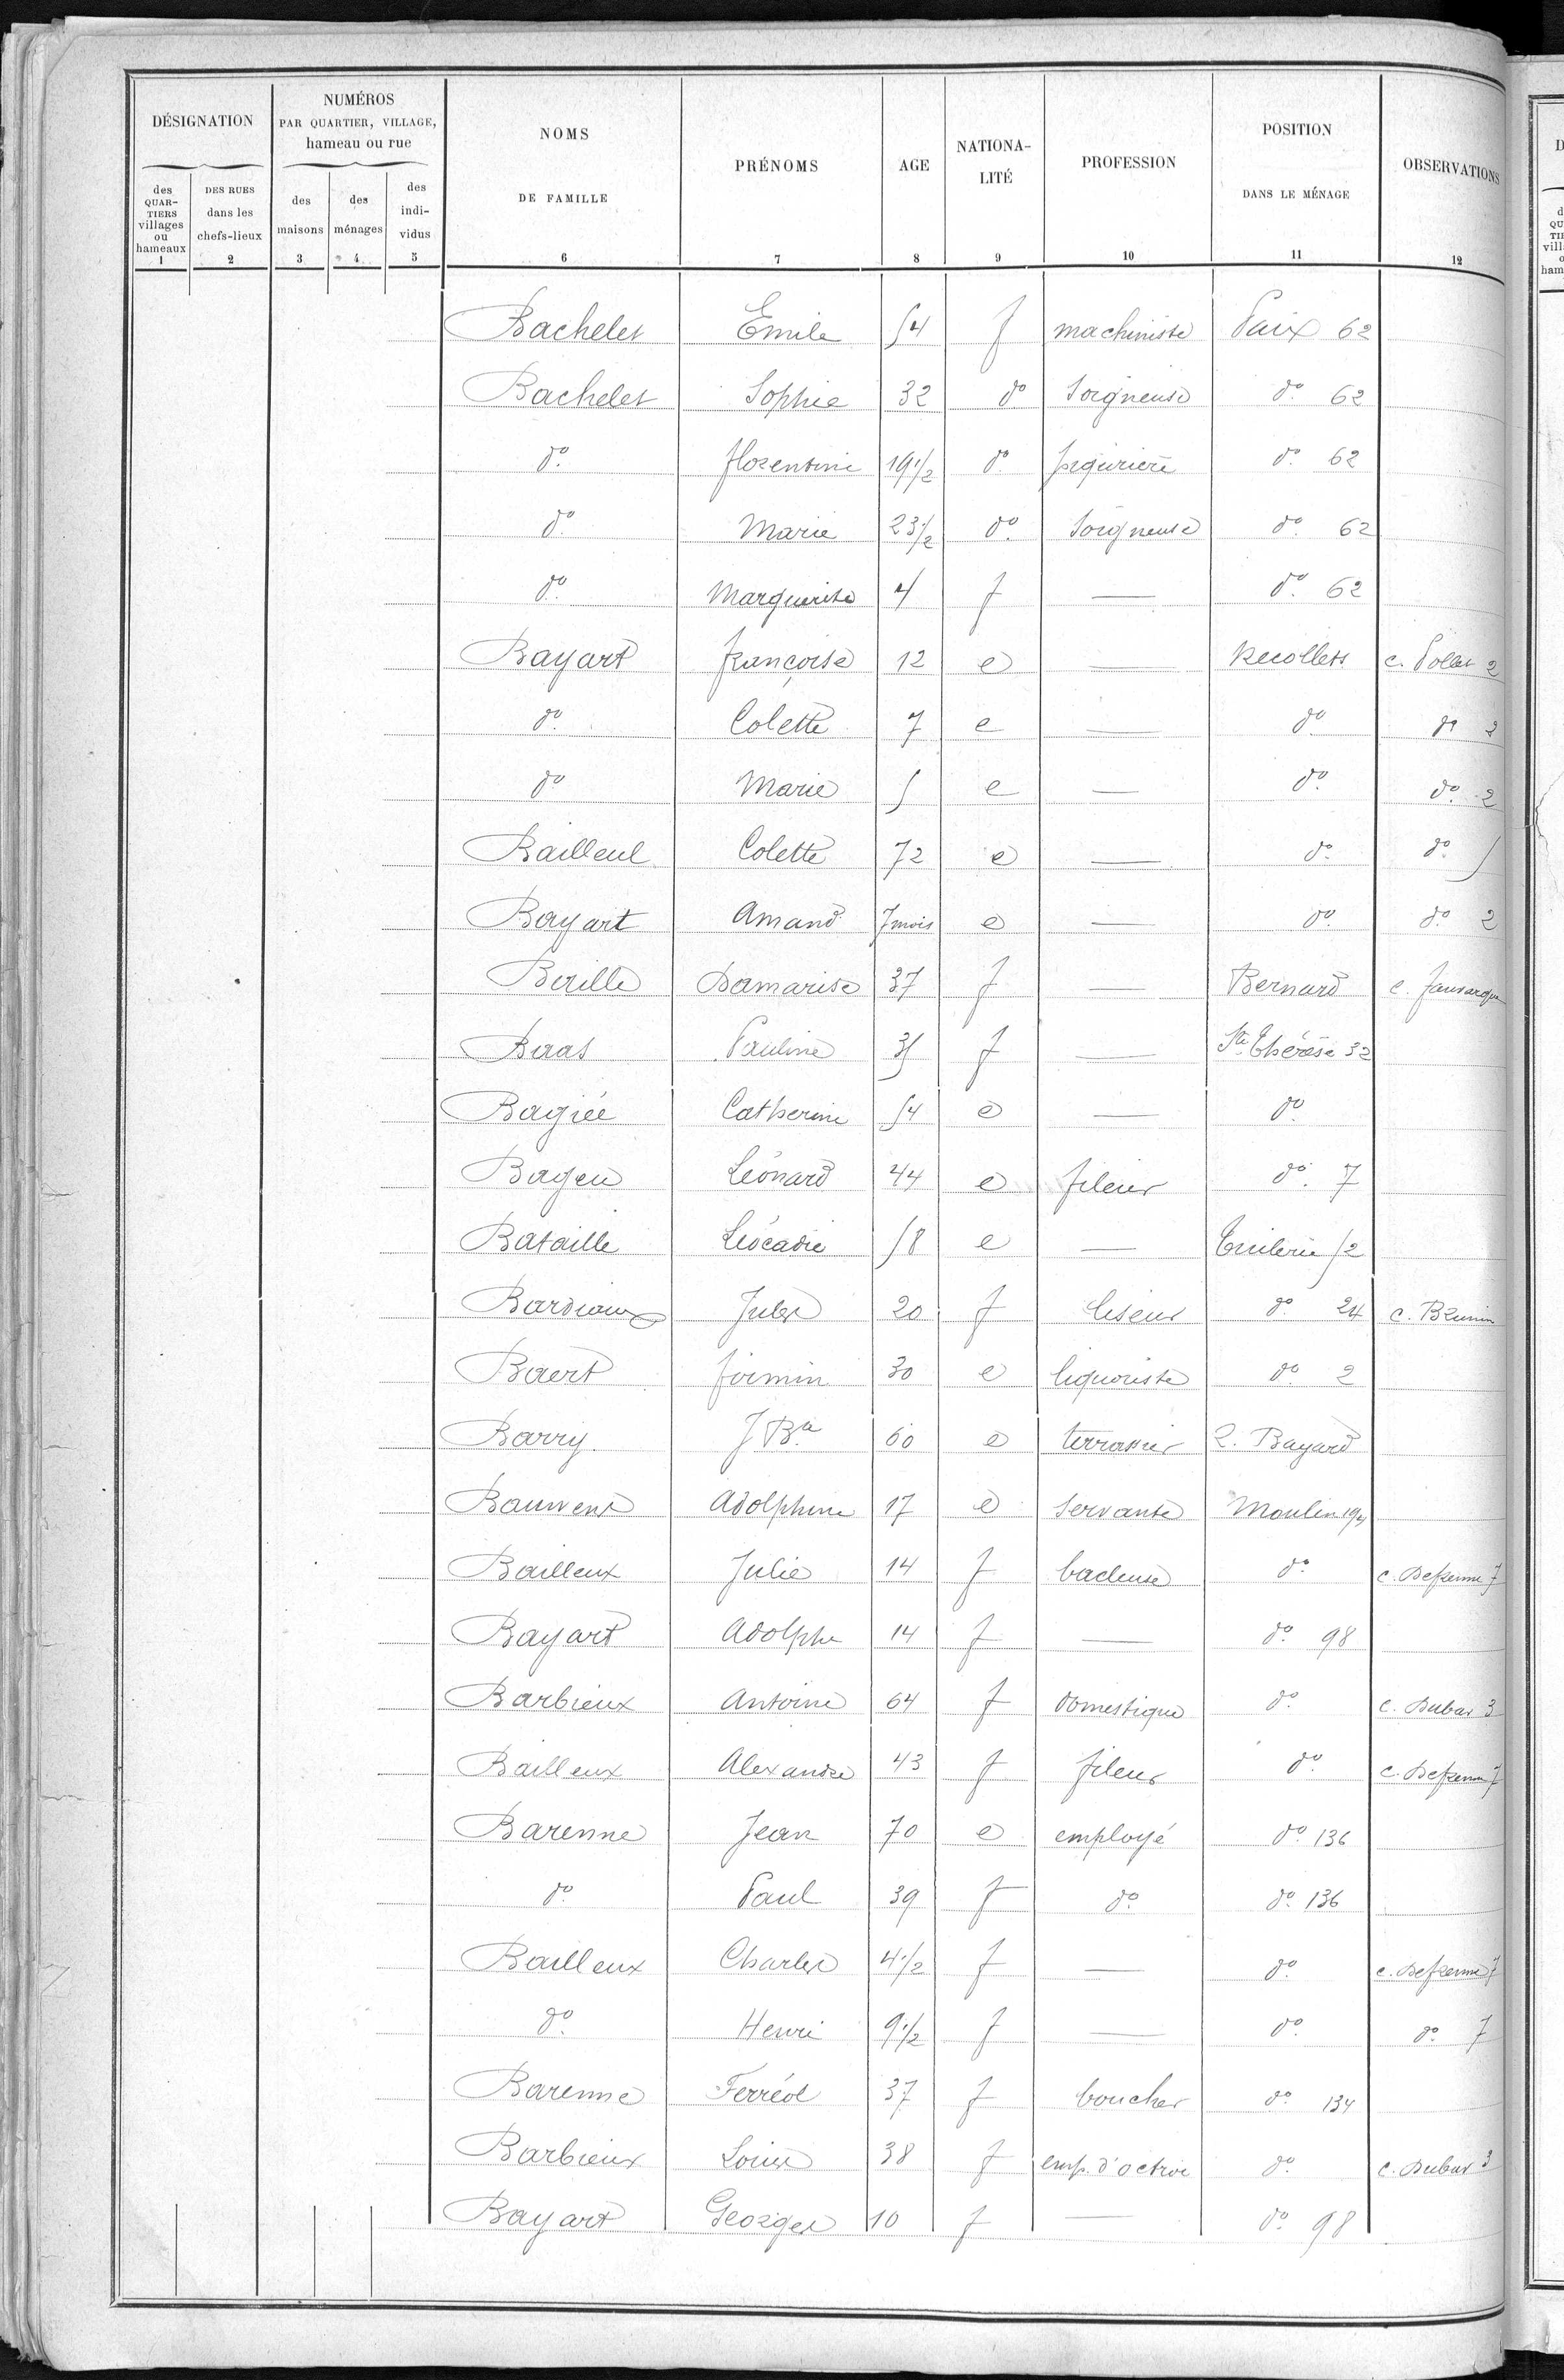 DÉSIGNATION
des QUARTIERS villages ou hameaux
1
DES RUES dans les chefs-lieux
2
NUMÉROS
PAR QUARTIER, VILLAGE,
hameau ou rue
des maisons
3
des ménages
4
des indi-vidus
5
NOMS
DE FAMILLE
6
PRÉNOMS
7
AGE
8
NATIONA-
LITÉ
9
PROFESSION
10
POSITION
DANS LE MÉNAGE
11
OBSERVATIONS
12
Bachelet Emile 54 f machiniste Paix 62
Bachelet Sophie 32 do Soigneuse do 62
do florentine 19 1/2 do piqurière do 62
do Marie 23 1/2 do Soigneuse do 62
do Marguerite 4 f — do 62
Bayart françoise 12 e — Recollets c. Pollet 2
do Colette 7 e — do do 2
do Marie 5 e — do do 2
Bailleul Colette 72 e — do do 5
Bayart Amand 7 mois e — do do 2
Baille Damarise 37 f — Bernard c.
Baas Pauline 35 f — Ste Thérèse 32
Bagiée Catherine 54 e — do
Bageu Léonard 44 e fileur do 7
Bataille Léocadie 58 e — Tuilerie 52
Bardiaux Jules 20 f liseur do 24 c. Brunin
Baert firmin 30 e liquoriste do 2
Barry J Bte 60 e terrassier 2. Bayard
Bauwens Adolphine 17 e servante Moulin 194
Bailleux Julie 14 f bacleuse do c. Defrenne 7
Bayart Adolphe 14 f — do 98
Barbieux Antoine 64 f domestique do c. Dubar 3
Bailleux Alexandre 43 f fileur do c. Defrenne 7
Barenne Jean 70 e employé do 136
do Paul 39 f do do 136
Bailleux Charles 4 1/2 f — do c. Defrenne 7
do Henri 9 1/2 f — do do 7
Barenne Ferréol 37 f boucher do 134
Barbieux Louis 38 f emp. d'octroi do c. Dubar 3
Bayart Georges 10 f — do 98